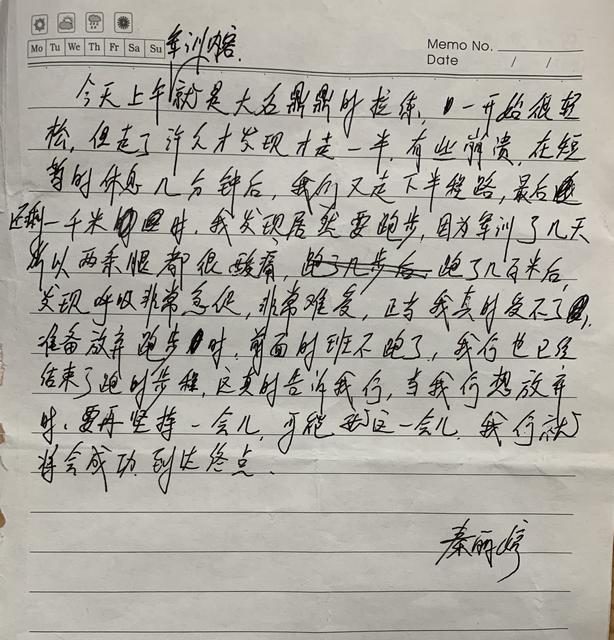 Mo Tu We Th Fr Sa Su
军训内容.
Memo No.
Date / /
今天上午就是大名鼎鼎的拉练, 一开始很轻
松, 但走了许久才发现才走一半, 有些崩溃, 在短
暂的休息几分钟后, 我们又走下半程路, 最后
还剩一千米时, 我发现居然要跑步, 因为军训了几天
所以两条腿都很酸痛, 跑了几步后, 跑了几百米后,
发现呼吸非常急促, 非常难受, 正当我真的受不了,
准备放弃跑步时, 前面的班不跑了, 我们也已经
结束了跑的步程, 这真的告诉我们, 当我们想放弃
时, 要再坚持一会儿, 可能就这一会儿, 我们就
将会成功, 到达终点.
秦丽婷